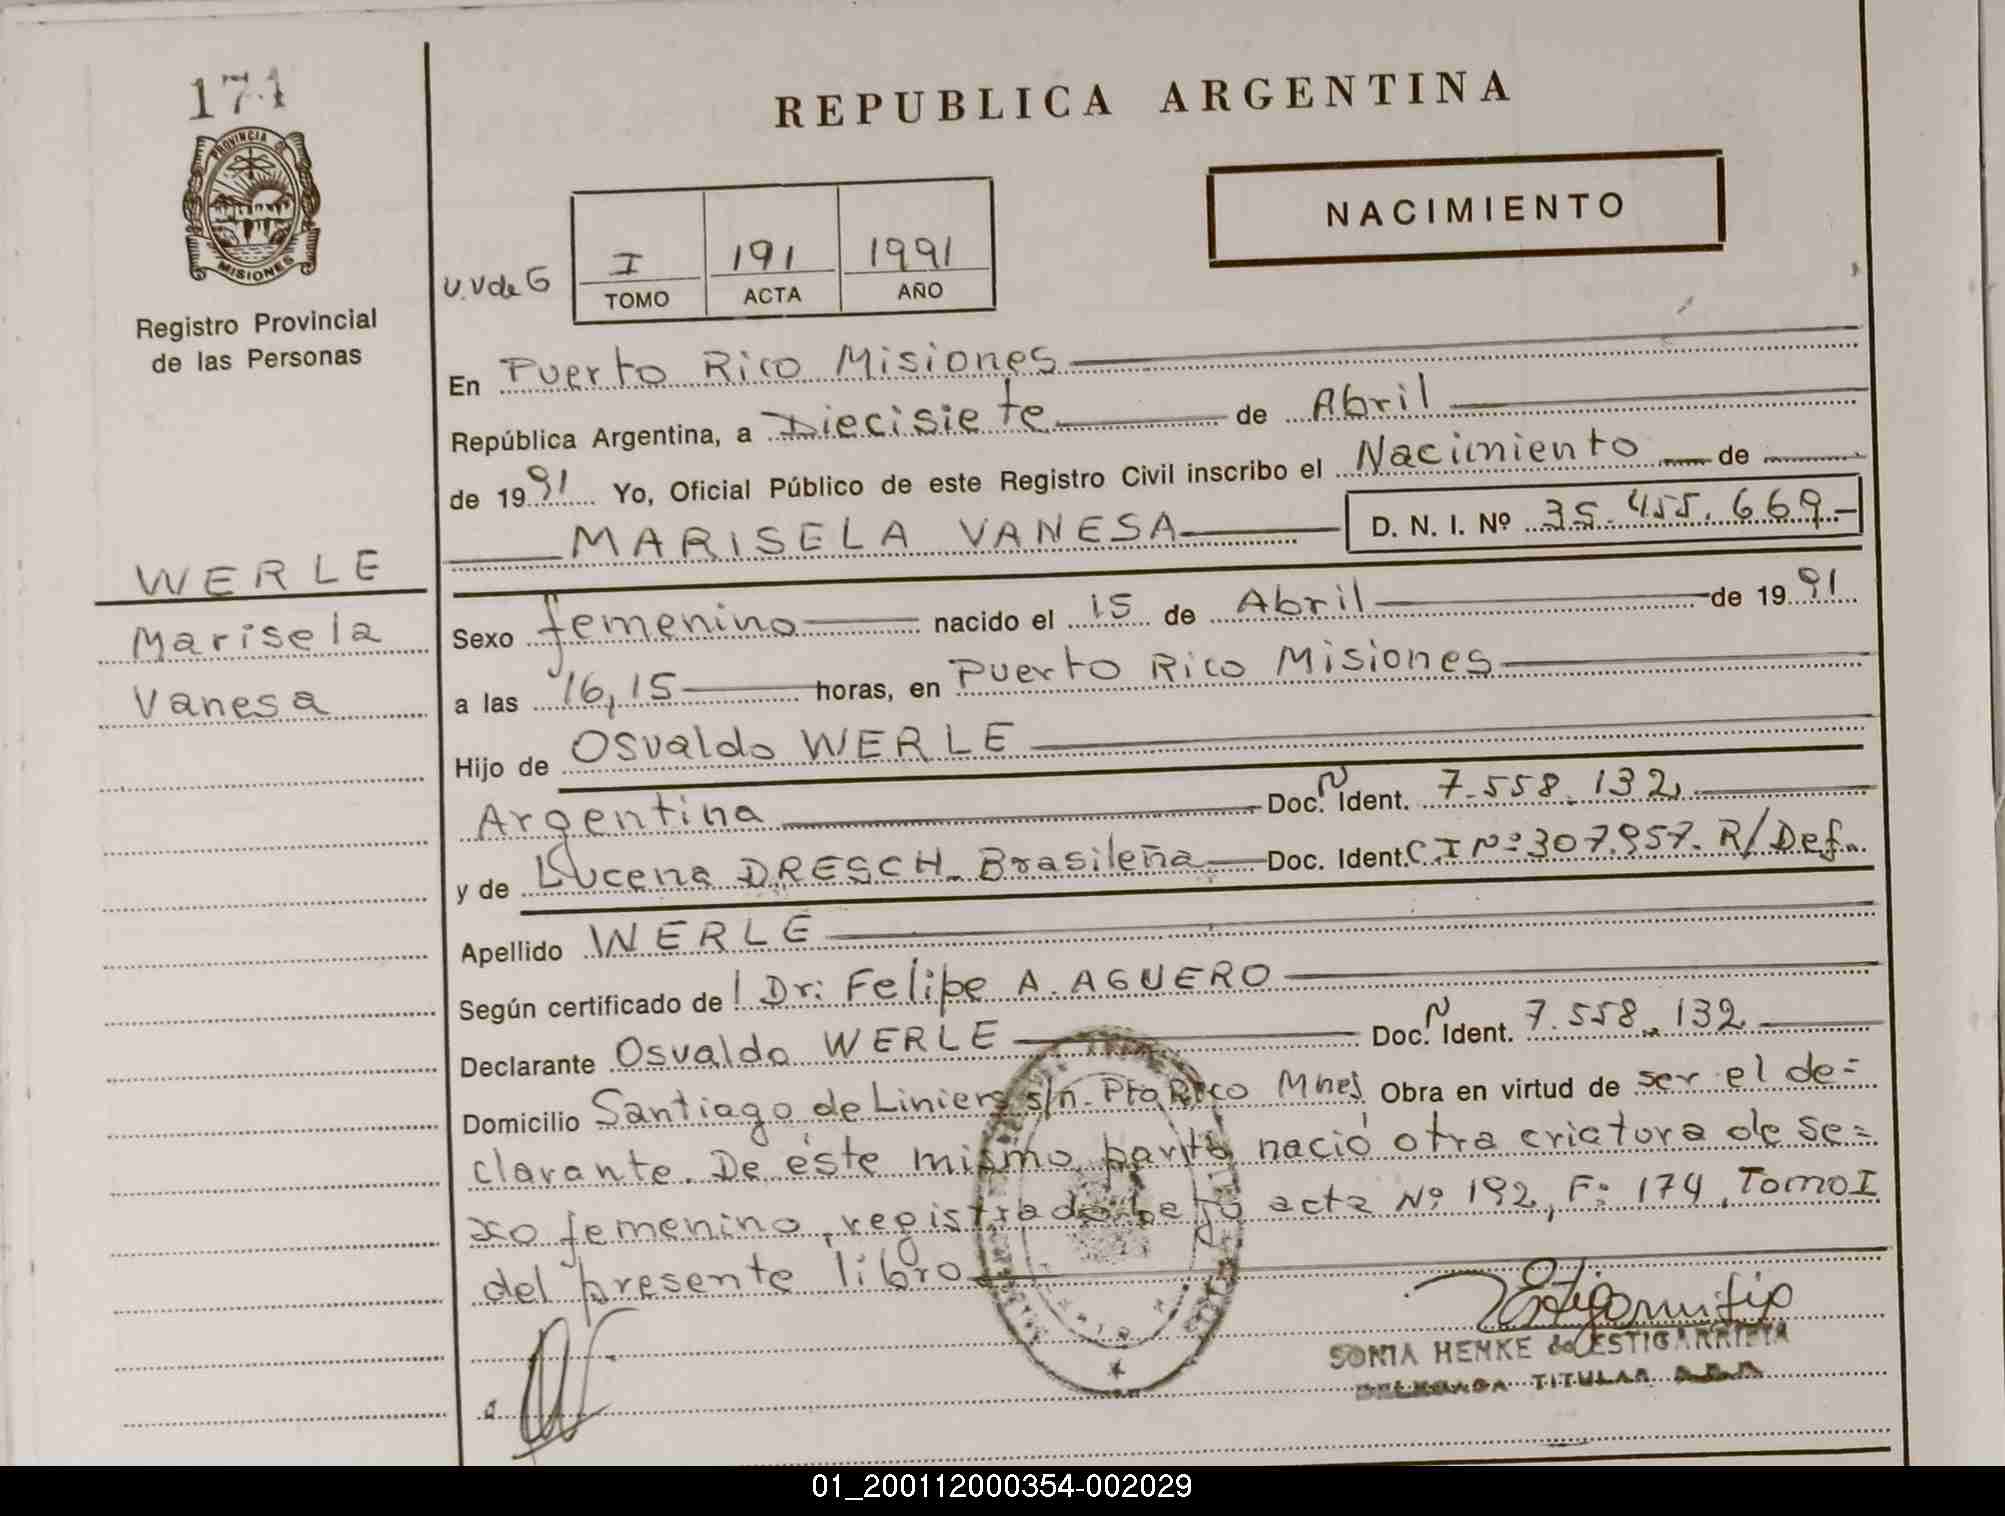 171
PROVINCIA DE
MISIONES
Registro Provincial
de las Personas
WERLE
Marisela
Vanesa
REPUBLICA ARGENTINA
NACIMIENTO
U.V de G
I 191 1991
TOMO ACTA AÑO
En Puerto Rico Misiones
República Argentina, a Diecisiete de Abril
de 1991 Yo, Oficial Público de este Registro Civil inscribo el Nacimiento de
MARISELA VANESA D. N. I. Nº 35.455.669.-
Sexo femenino nacido el 15 de Abril de 1991
a las 16,15 horas, en Puerto Rico Misiones
Hijo de Osvaldo WERLE
Argentina Doc. N Ident. 7.558.132,
y de Lucena DRESCH. Brasileña Doc. Ident. C.I Nº 307.957. R/Def.
Apellido WERLE
Según certificado de l Dr: Felipe A. AGUERO
Declarante Osvaldo WERLE Doc. N Ident. 7.558.132
Domicilio Santiago de Liniers s/n. Pto Rico Mnes Obra en virtud de ser el de=
clarante. De éste mismo parto nació otra criatura de se=
xo femenino, registrado bajo acta Nº 192, Fº 174, Tomo I
del presente libro
SONIA HENKE de ESTIGARRIBIA
DELEGADA TITULAR
01_200112000354-002029